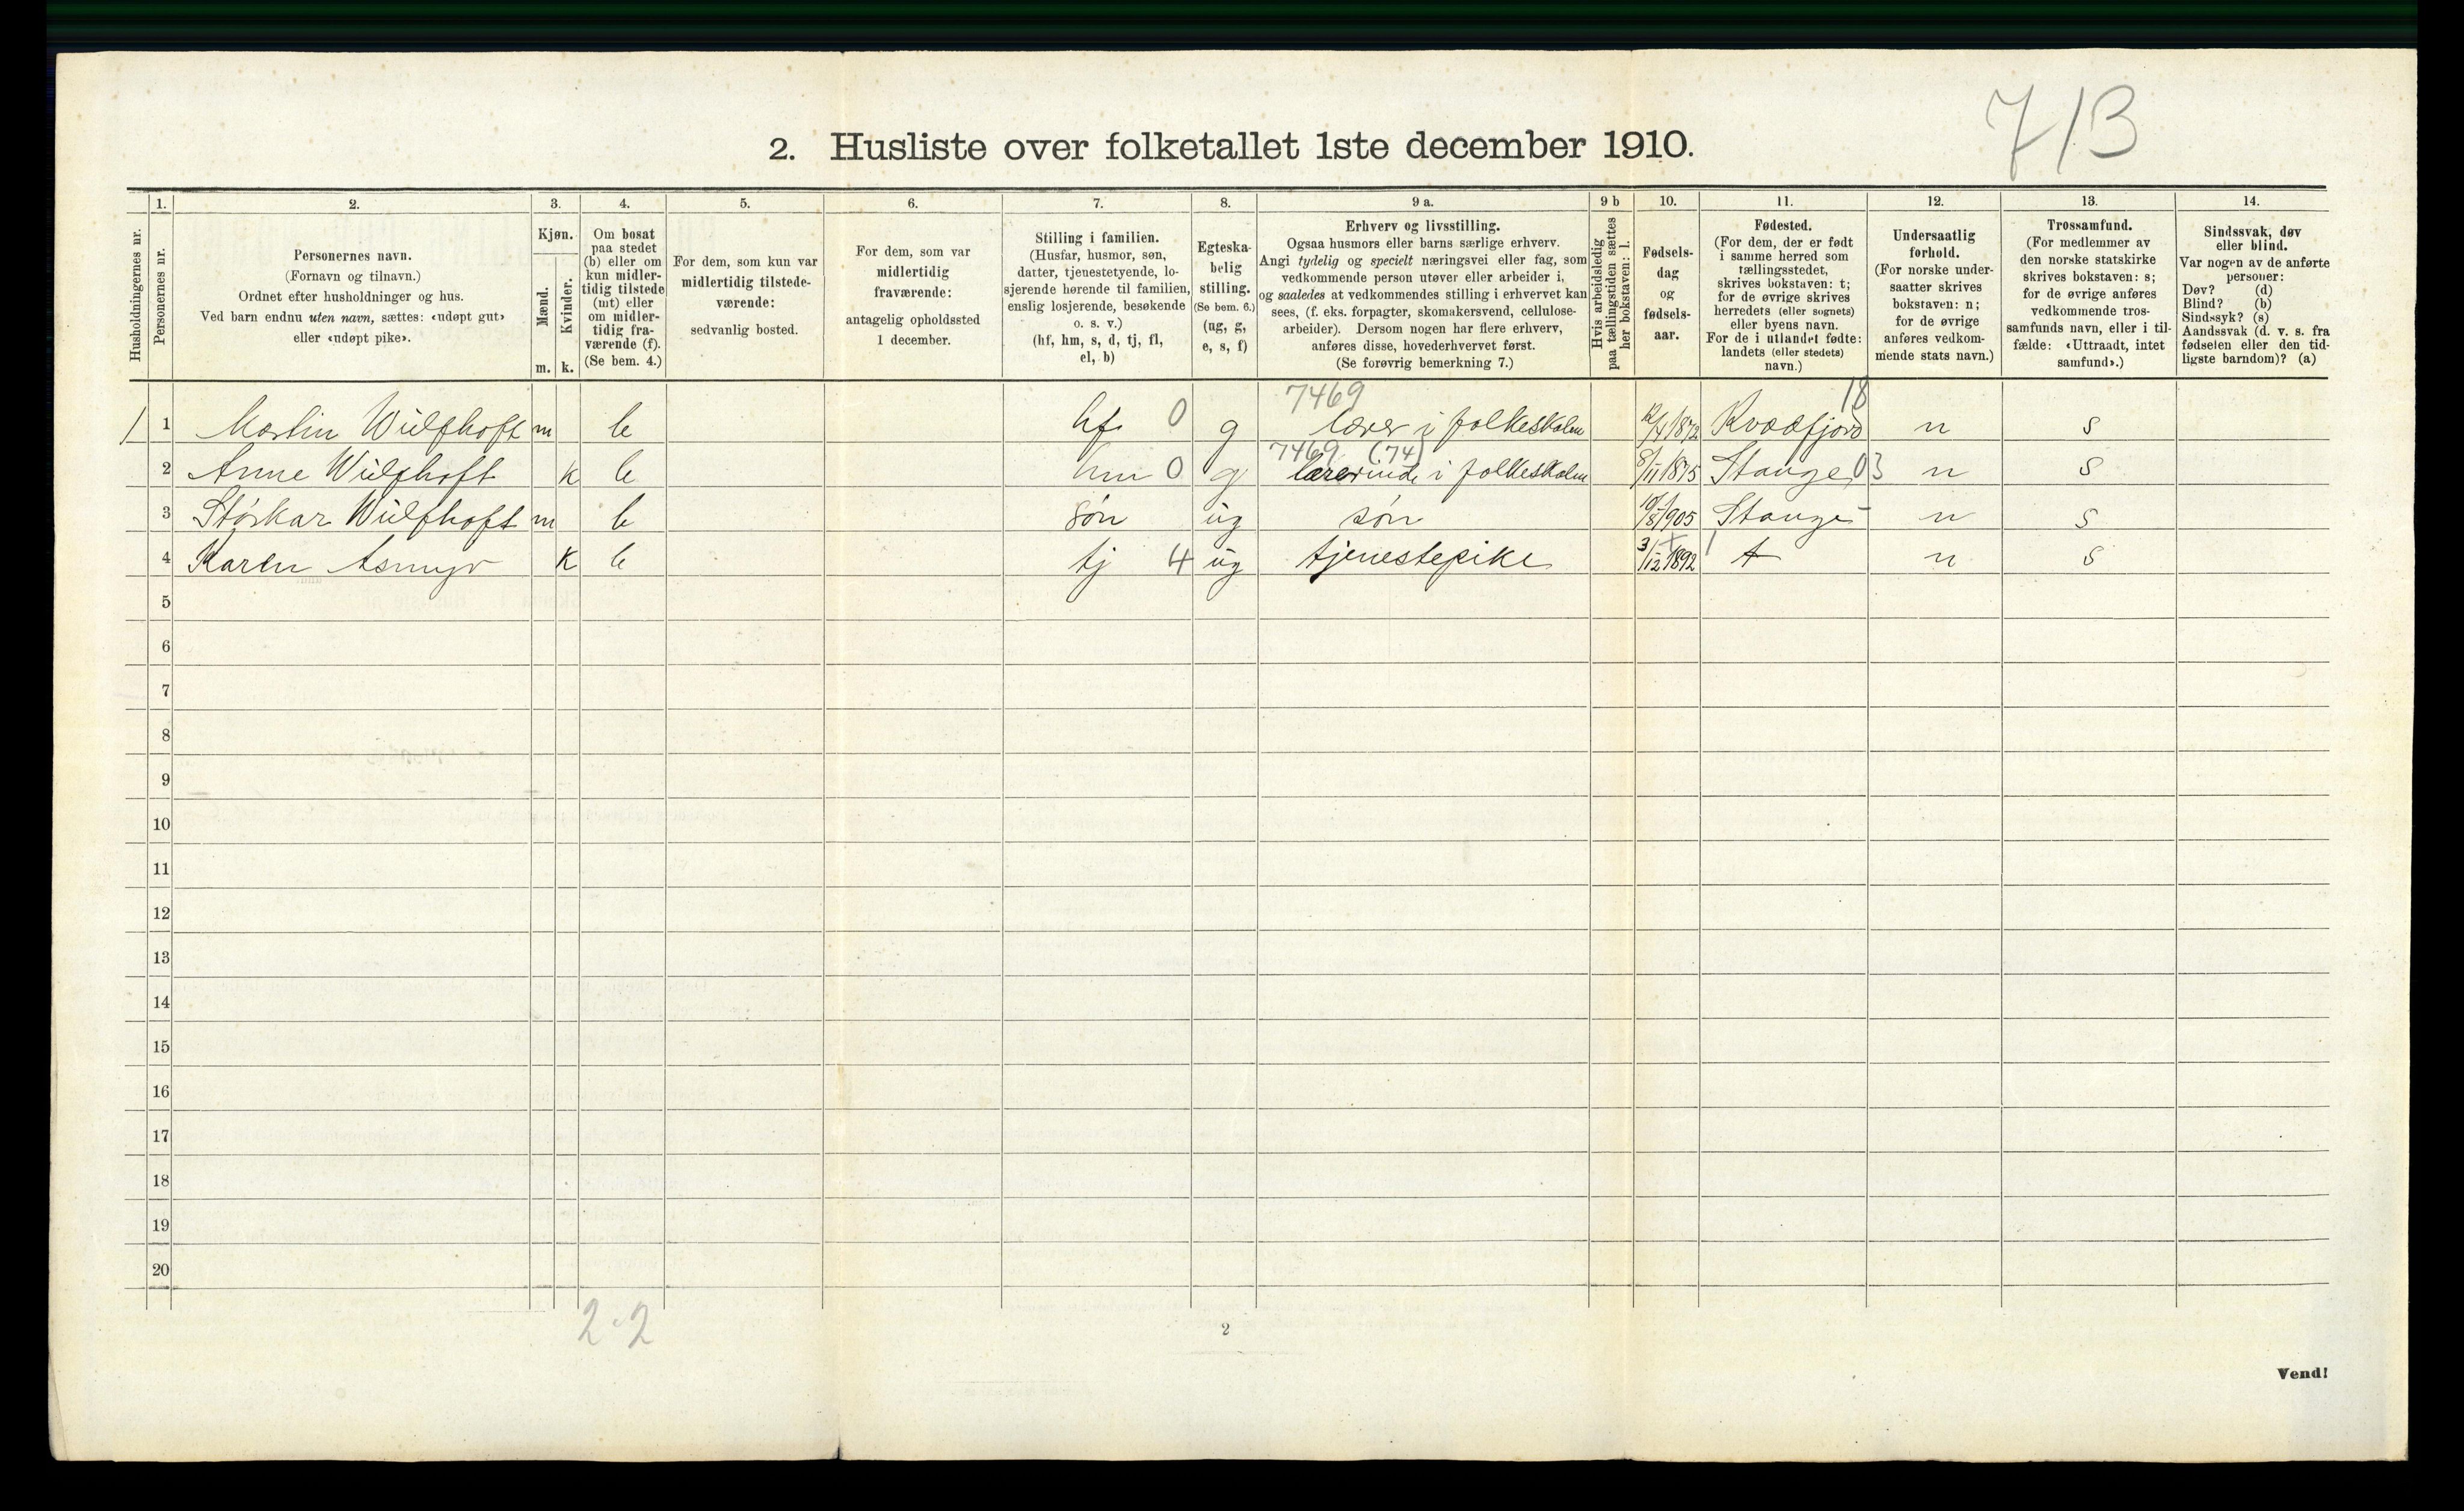 713
2. Husliste over folketallet 1ste december 1910.
Husholdningernes nr.
1. Personernes nr.
2. Personernes navn.
(Fornavn og tilnavn.)
Ordnet efter husholdninger og hus.
Ved barn endnu uten navn, sættes: «udøpt gut»
eller «udøpt pike».
3. Kjøn.
Mænd. m.
Kvinder. k.
4. Om bosat
paa stedet
(b) eller om
kun midler-
tidig tilstede
(mt) eller
om midler-
tidig fra-
værende (f).
(Se bem. 4.)
5. For dem, som kun var
midlertidig tilstede-
værende:
sedvanlig bosted.
6. For dem, som var
midlertidig
fraværende:
antagelig opholdssted
1 december.
7. Stilling i familien.
(Husfar, husmor, søn,
datter, tjenestetyende, lo-
sjerende hørende til familien,
enslig losjerende, besøkende
o. s. v.)
(hf, hm, s, d, tj, fl,
el, b)
8. Egteska-
belig
stilling.
(Se bem. 6.)
(ug, g,
e, s, f)
9 a. Erhverv og livsstilling.
Ogsaa husmors eller barns særlige erhverv.
Angi tydelig og specielt næringsvei eller fag, som
vedkommende person utøver eller arbeider i,
og saaledes at vedkommendes stilling i erhvervet kan
sees, (f. eks. forpagter, skomakersvend, cellulose-
arbeider). Dersom nogen har flere erhverv,
anføres disse, hovederhvervet først.
(Se forøvrig bemerkning 7.)
9 b Hvis arbeidsledig
paa tællingstiden sættes
her bokstaven: l.
10. Fødsels-
dag
og
fødsels-
aar.
11. Fødested.
(For dem, der er født
i samme herred som
tællingsstedet,
skrives bokstaven: t;
for de øvrige skrives
herredets (eller sognets)
eller byens navn.
For de i utlandet fødte:
landets (eller stedets)
navn.)
12. Undersaatlig
forhold.
(For norske under-
saatter skrives
bokstaven: n;
for de øvrige
anføres vedkom-
mende stats navn.)
13. Trossamfund.
(For medlemmer av
den norske statskirke
skrives bokstaven: s;
for de øvrige anføres
vedkommende tros-
samfunds navn, eller i til-
fælde: «Uttraadt, intet
samfund».)
14. Sindssvak, døv
eller blind.
Var nogen av de anførte
personer:
Døv? (d)
Blind? (b)
Sindssyk? (s)
Aandssvak (d. v. s. fra
fødselen eller den tid-
ligste barndom)? (a)
7469 18
1 1 Martin Wülfhoft m b hf 0 g lærer i folkeskolen 12/4 1872 Kvædfjord n s
7469 (74)
2 Anne Wülfhoft k b hm 0 g lærerinde i folkeskolen 8/11 1875 Stange 03 n s
3 Störkar Wülfhoft m b søn ug søn 10/8 1905 Stange - n s
4 Karen k b tj 4 ug tjenestepike 3/12 1892 t n s
5
6
7
8
9
10
11
12
13
14
15
16
17
18
19
20
2·2
2
Vend!